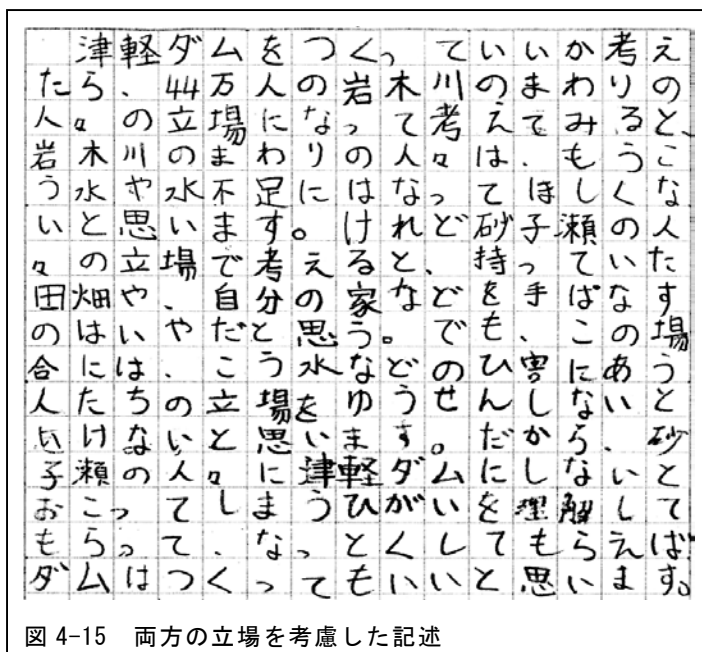 津軽ダムをつくっていいか考え
たら、44万人の岩木川のまわりの
人々の立場になって考えてみると、
岩木川のまわりの人々は、もうこ
う水や水不足にはなってほしくな
いと思います。けれど砂子瀬の人
々の立場で考えると、持っていた
田畑や、自分の家などを手ばなす
のはいやだと思う。でも、この場
合には、こう水などのひ害にあう
人たちの立場をゆうせんしないと
いけないと思います。だから、砂
子瀬の人々に津軽ダムにしないと
おこってしまうひがいを理解して
もらって、なっとくしてもらえば
ダムはつくってもいいと思います。
図 4-15 両方の立場を考慮した記述